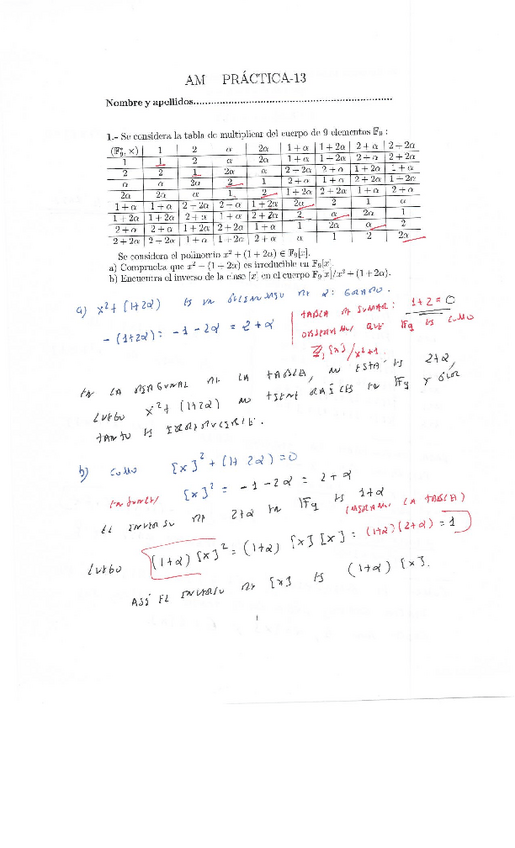 AM PRÁCTICA-13
Nombre y apellidos.................................................................
1.- Se considera la tabla de multiplicar del cuerpo de 9 elementos 𝔽₉ :
(𝔽₉*, ×) | 1 | 2 | α | 2α | 1 + α | 1 + 2α | 2 + α | 2 + 2α
1 | 1 | 2 | α | 2α | 1 + α | 1 + 2α | 2 + α | 2 + 2α
2 | 2 | 1 | 2α | α | 2 + 2α | 2 + α | 1 + 2α | 1 + α
α | α | 2α | 2 | 1 | 2 + α | 1 + α | 2 + 2α | 1 + 2α
2α | 2α | α | 1 | 2 | 1 + 2α | 2 + 2α | 1 + α | 2 + α
1 + α | 1 + α | 2 + 2α | 2 + α | 1 + 2α | 2α | 2 | 1 | α
1 + 2α | 1 + 2α | 2 + α | 1 + α | 2 + 2α | 2 | α | 2α | 1
2 + α | 2 + α | 1 + 2α | 2 + 2α | 1 + α | 1 | 2α | α | 2
2 + 2α | 2 + 2α | 1 + α | 1 + 2α | 2 + α | α | 1 | 2 | 2α
Se considera el polinomio x² + (1 + 2α) ∈ 𝔽₉[x].
a) Comprueba que x² + (1 + 2α) es irreducible en 𝔽₉[x].
b) Encuentra el inverso de la clase [x] en el cuerpo 𝔽₉[x]/x² + (1 + 2α).
a) x² + (1+2α) ES UN POLINOMIO DE 2º GRADO.
- (1+2α) = -1 - 2α = 2 + α
TABLA DE SUMAR: 1+2 = 0
OBSERVAMOS QUE 𝔽₉ ES COMO
ℤ₃[x]/x²+1
EN LA DIAGONAL DE LA TABLA, NO ESTÁ EL 2+α,
LUEGO x² + (1+2α) NO TIENE RAÍCES EN 𝔽₉ Y POR
TANTO ES IRREDUCIBLE.
b) COMO [x]² + (1+2α) = 0
ENTONCES [x]² = -1 - 2α = 2 + α
EL INVERSO DE 2+α EN 𝔽₉ ES 1+α
(MIRAMOS LA TABLA)
LUEGO (1+α) [x]² = (1+α) [x] [x] = (1+α)(2+α) = 1
ASÍ EL INVERSO DE [x] ES (1+α) [x].
1